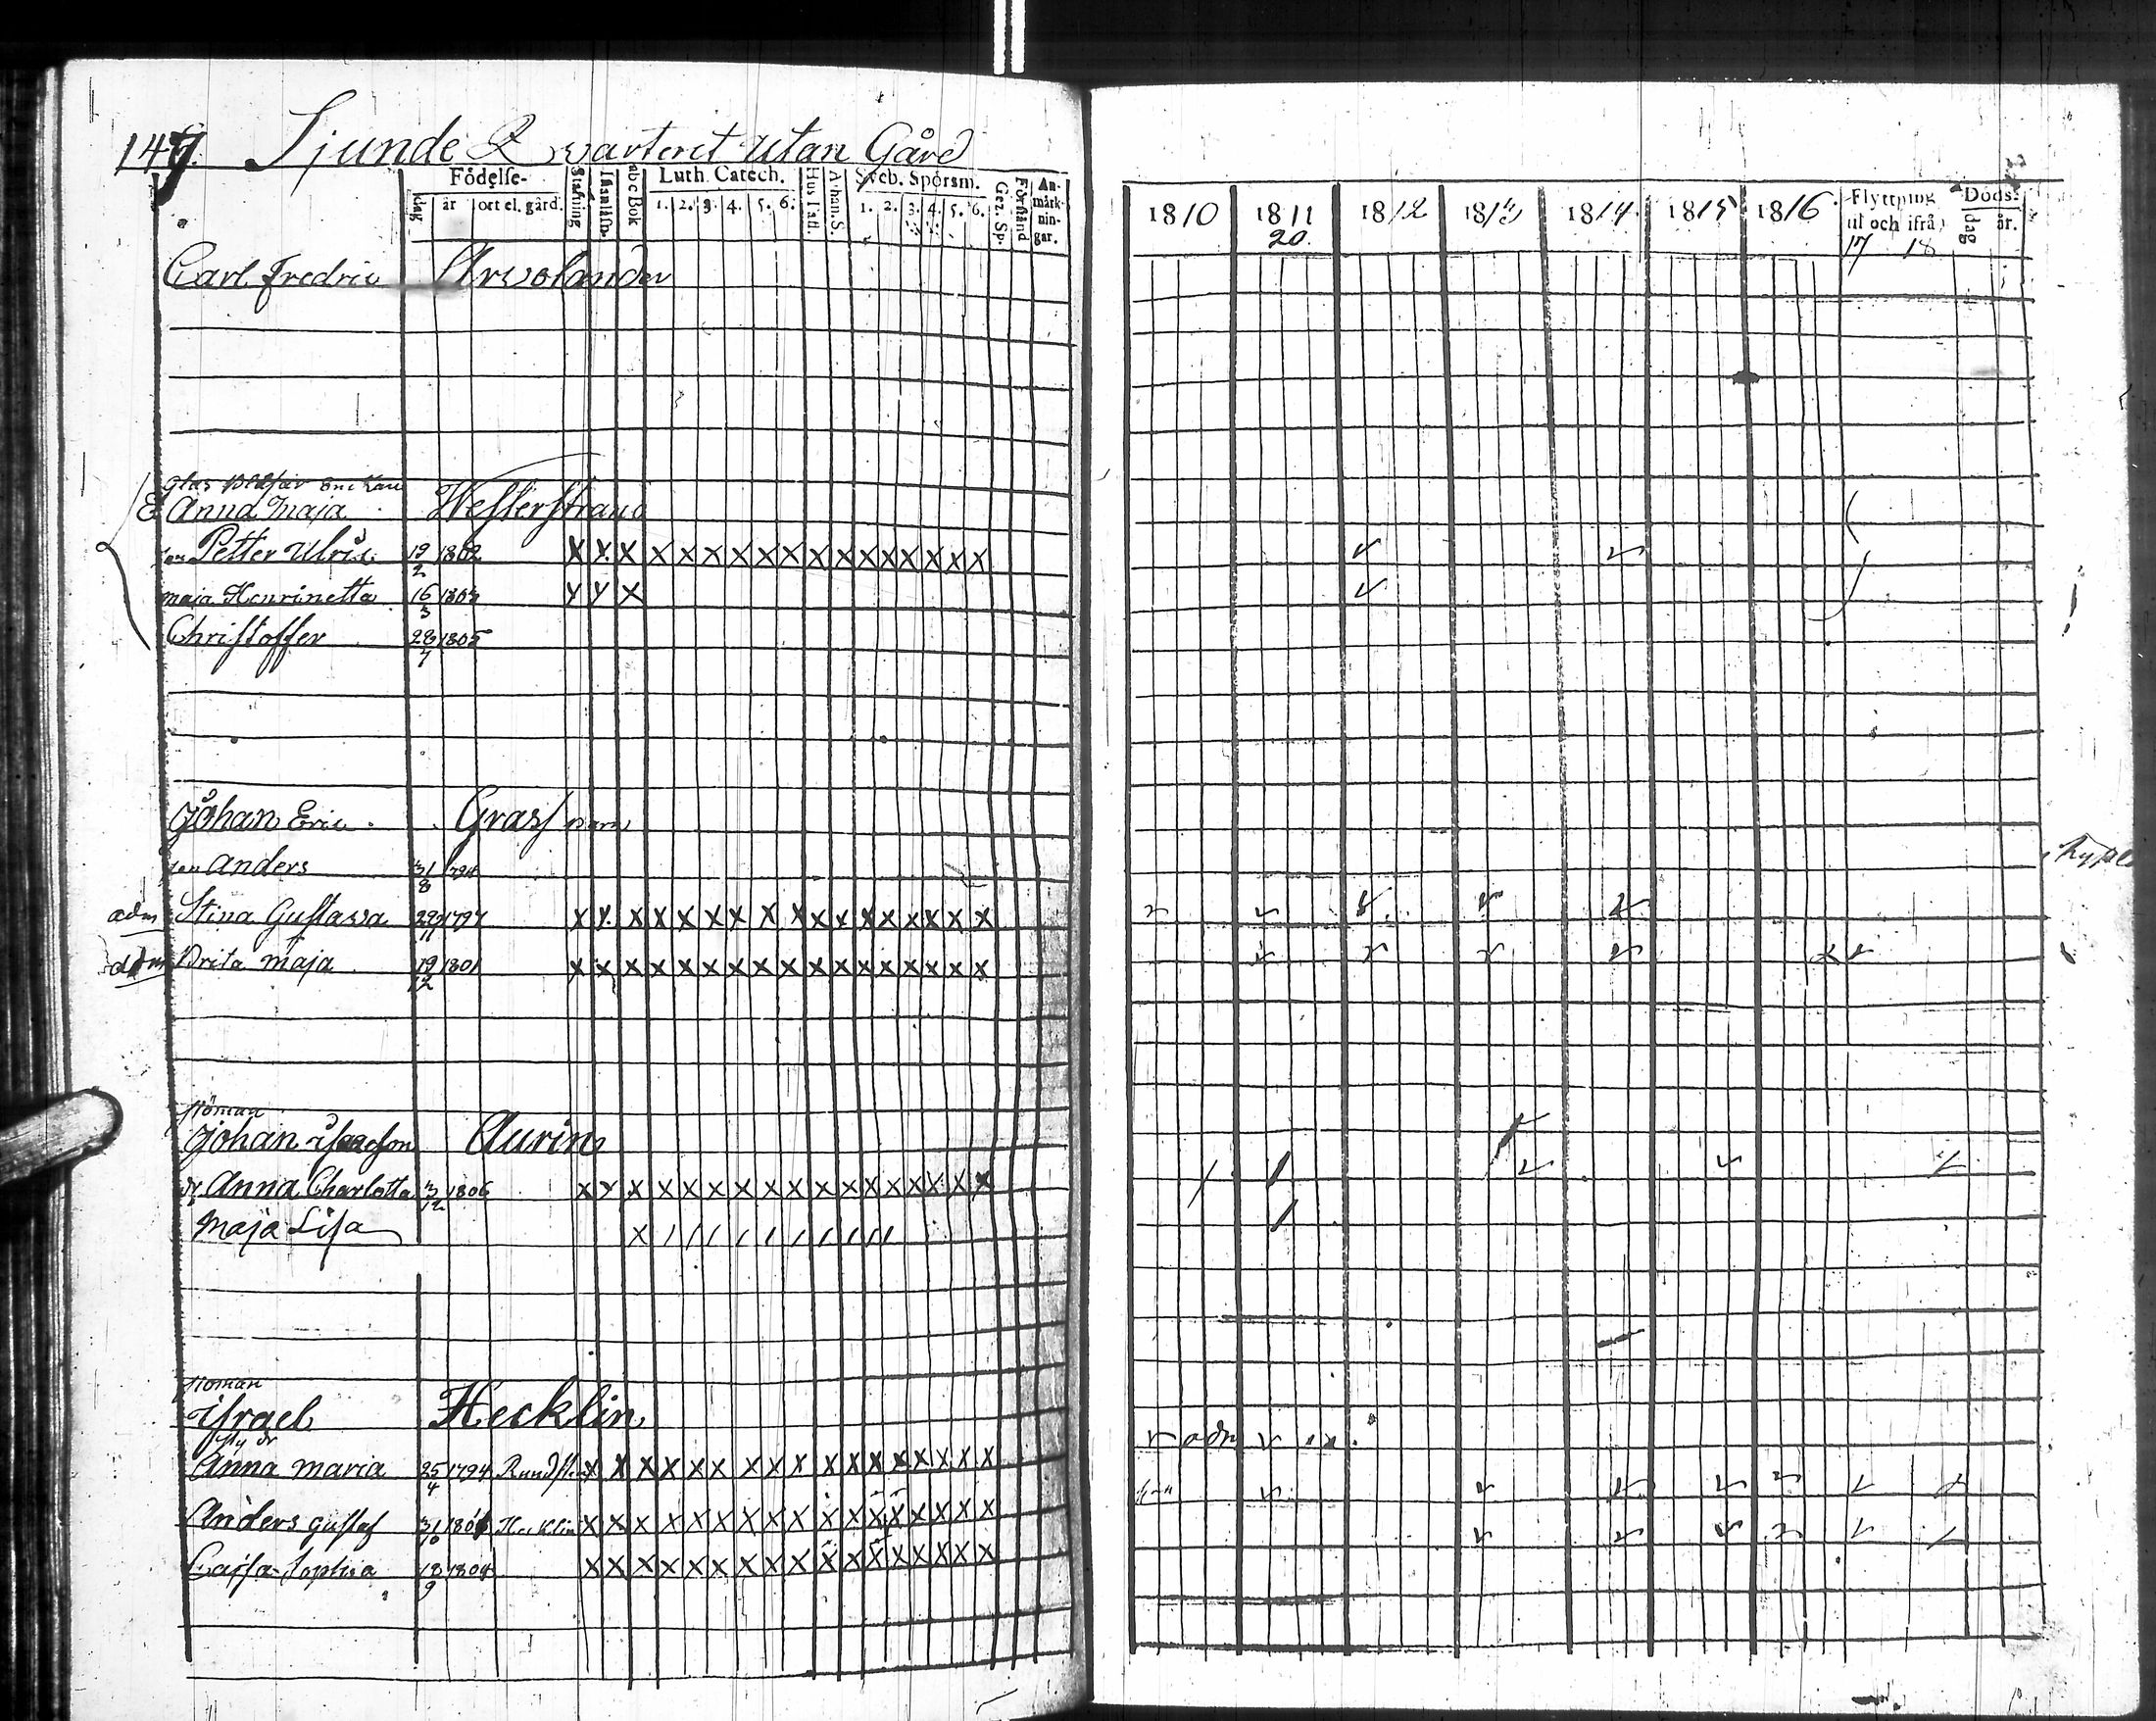 147. Sjunde Qwarteret utan Gård
Födelse- Stafning Luth. Catech. Sveb. Spörsm. An-märk-nin-gar.
dag år ort el. gård. abc Bok 1. 2. 3. 4. 5. 6. Hus Tafl. 1. 2. 3. 4. 5. 6. Gez. Sp. Förstånd
1810 1811 1812 1813 1814 1815 1816 Flyttning Döds-
20. til och ifrå dag år.
17 18
Carl Fredric Arvolander
Glas
E Anna Maja Westerstrand
son Petter Ulric 19/2 1802 X X X X X X X X X X X X X X X X X
maja Henrinetta 16/3 1803 Y Y X
Christoffer 28/7 1805
Johan Eric Grass
son Anders 31/8 794
adm Stina Gustava 29/11 1797 X X X X X X X X X X X X X X X X X
adm Brita maja 19/12 1801 X X X X X X X X X X X X X X X X X
Johan Isacsson Aurin
dr Anna Charlotta 3/12 1806 X Y X X X X X X X X X X X X X X X
Maja Lisa X / / / / / / / / / /
Israel Hecklin
adm
Anna maria 25/4 1794 X X X X X X X X X X X X X X X X X
Anders Gustaf 31/10 Hecklin X X X X X X X X X X X X X X X X X
Cajsa Sophia 18/9 1804 X X X X X X X X X X X X X X X X X